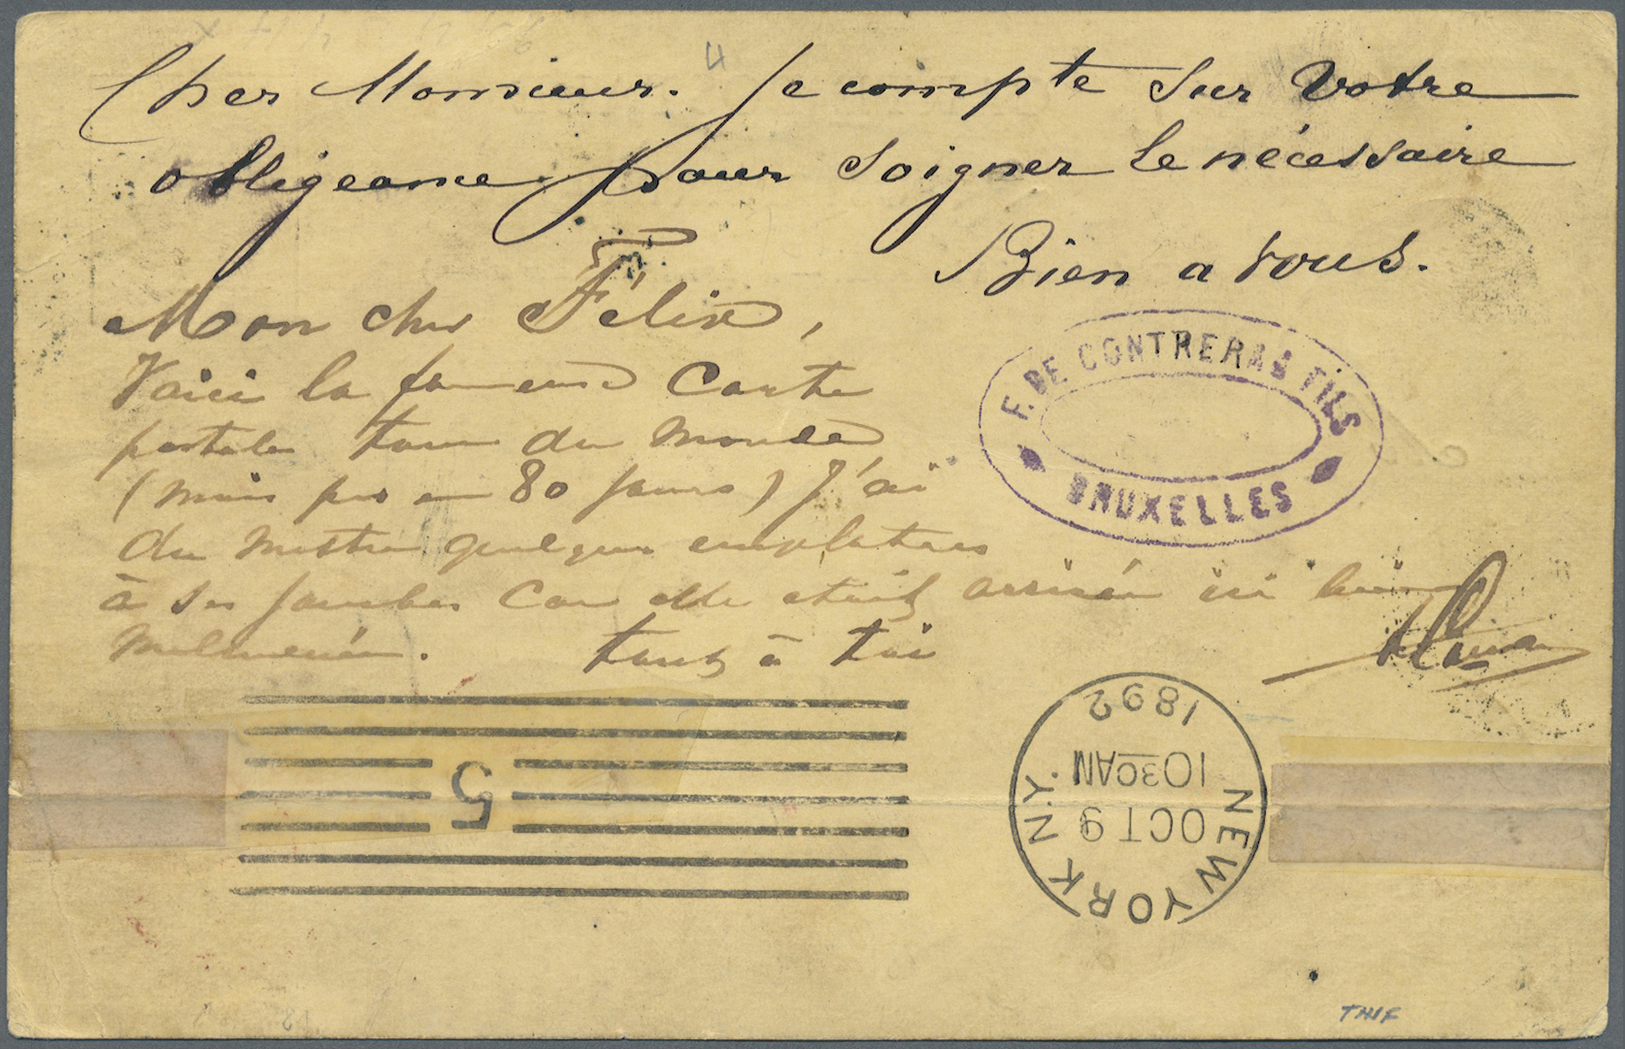 Cher Monsieur. Je compte sur Votre
obligeance pour soigner le nécessaire
Bien a vous.
Mon cher Félix,
Voici la fameuse Carte
postale tour du monde
(mais pas en 80 jours) J'ai
du mettre quelques emplatres
à ses jambes Car elle était arrivée ici bien
malmenée. tout à toi
F. DE CONTRERAS FILS
BRUXELLES
5
NEW YORK N.Y.
OCT 9
10 30 AM
1892
THIF
4